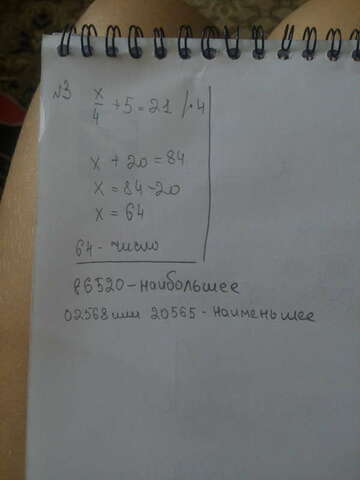 №3 x/4 + 5 = 21 / · 4
x + 20 = 84
x = 84 - 20
x = 64
64 - число
86520 - наибольшее
02568 или 20565 - наименьшее